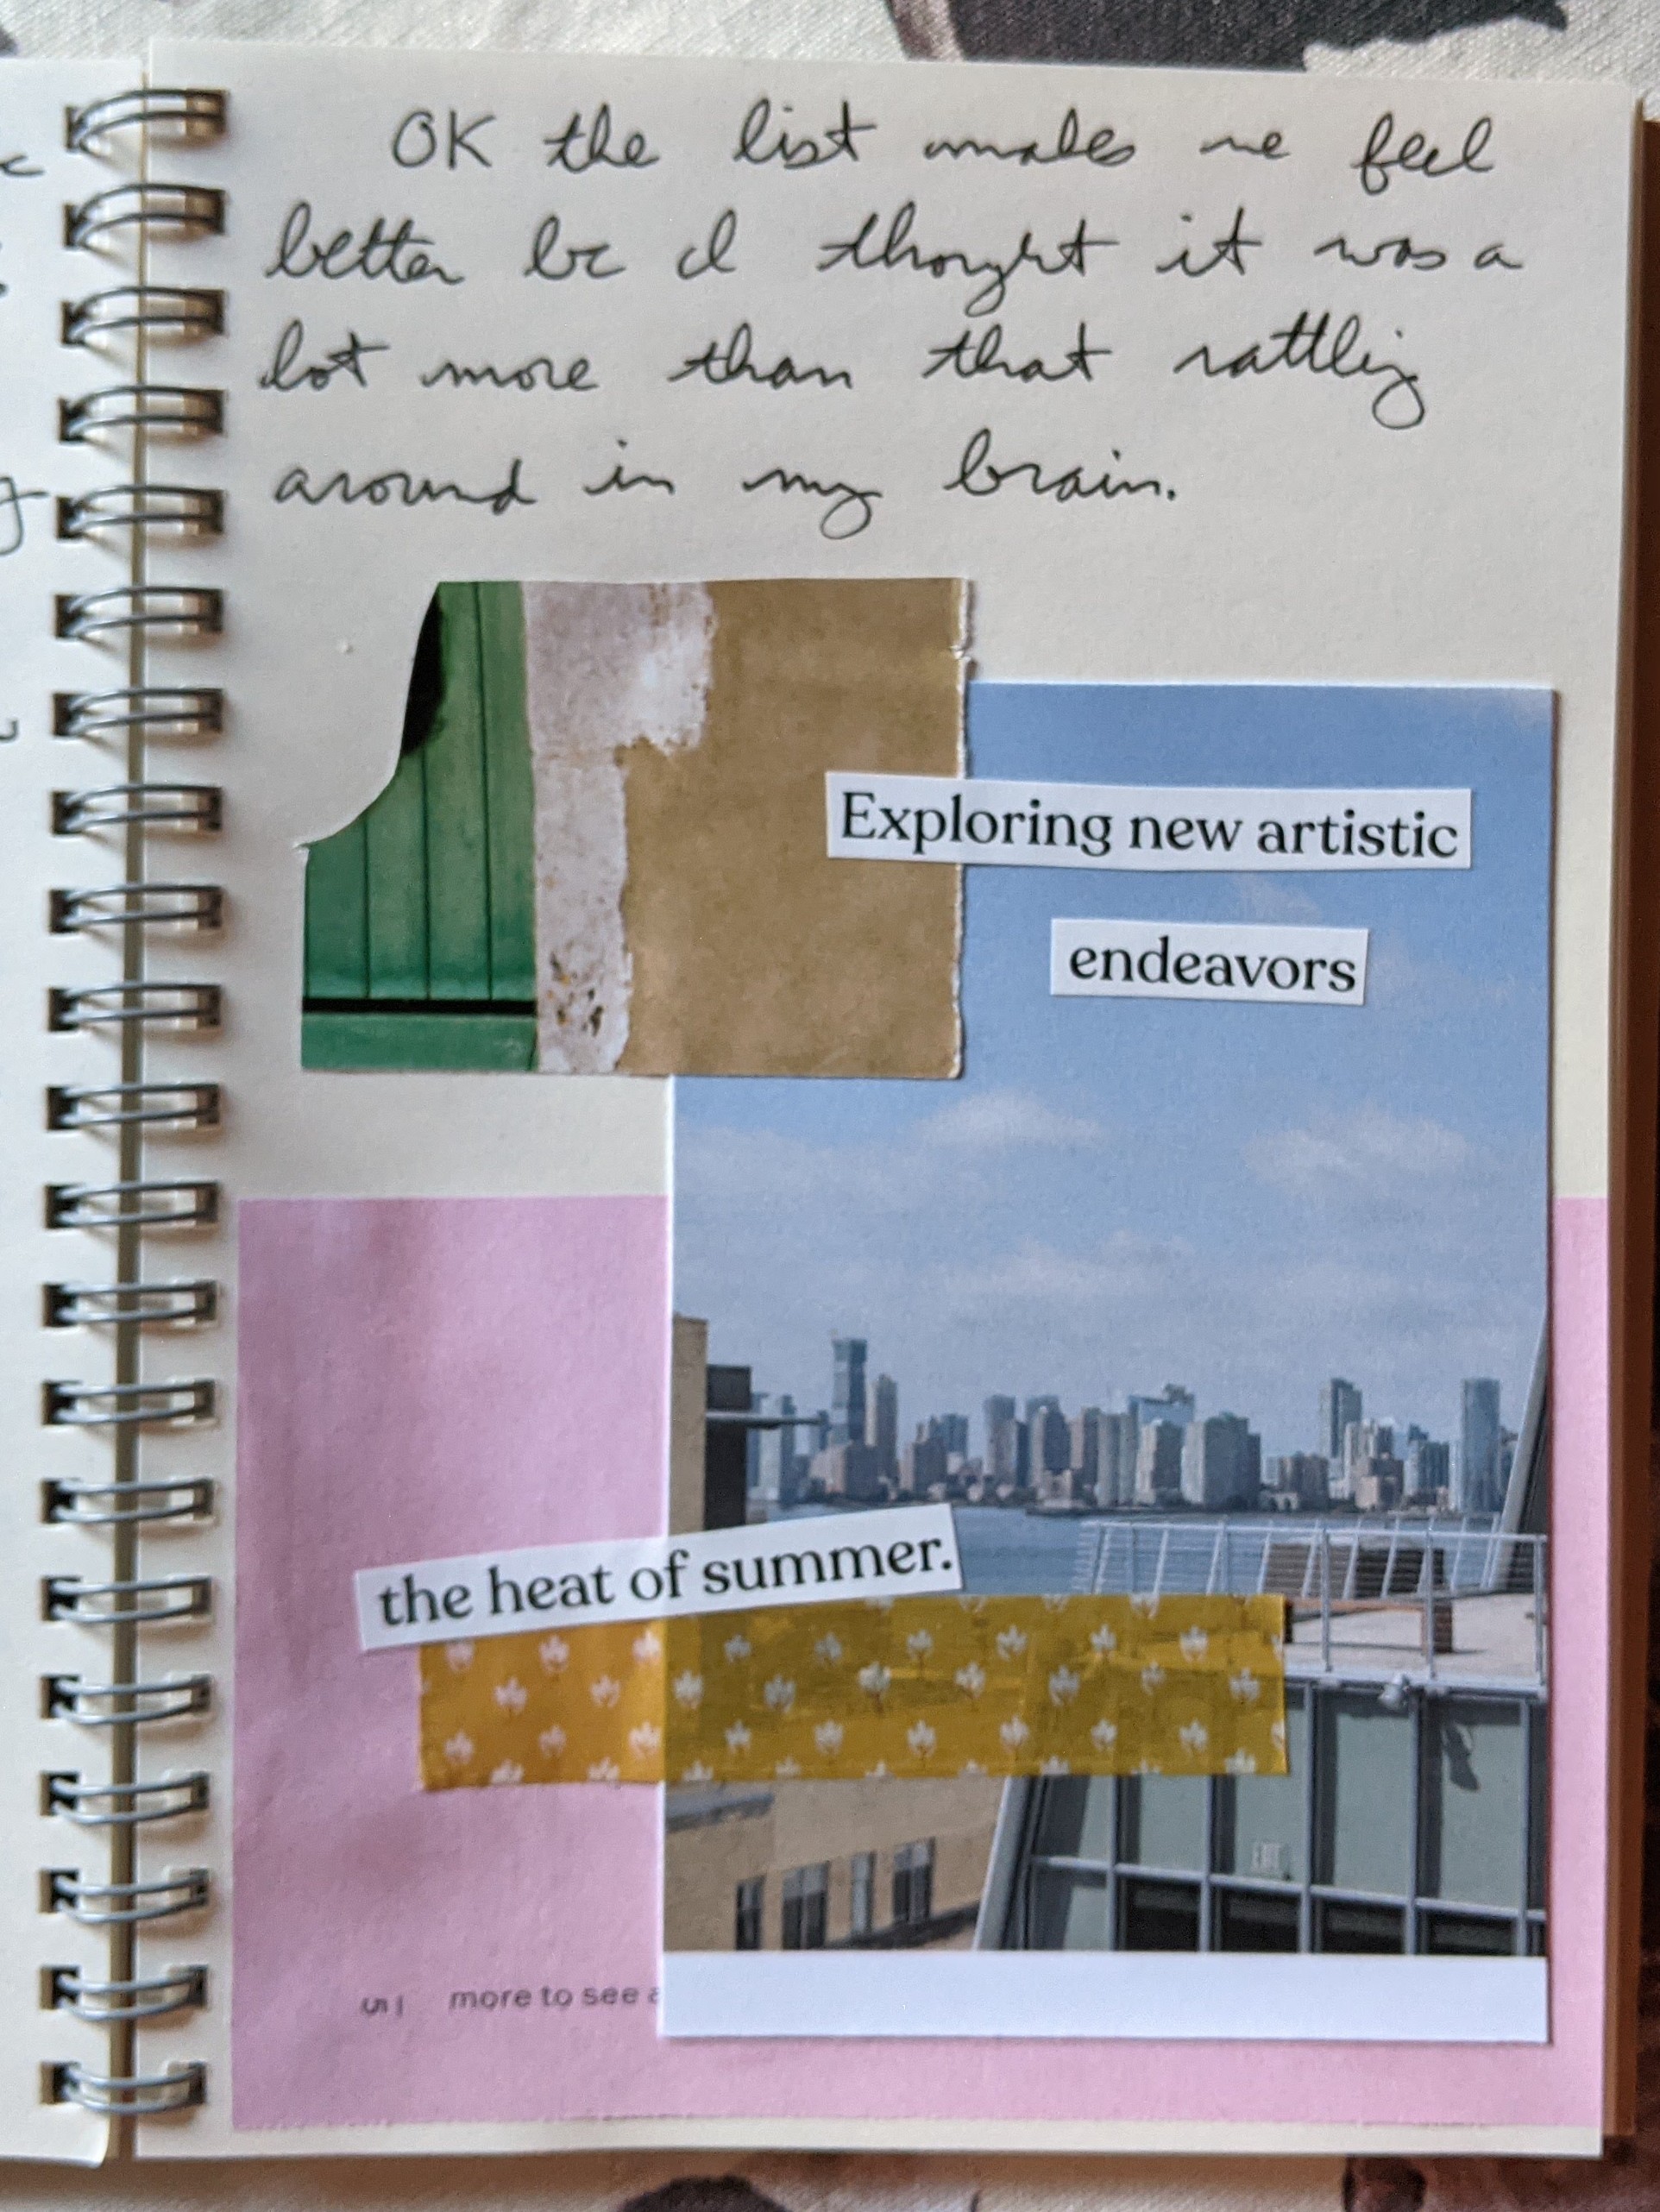 OK the list makes me feel
better bc I thought it was a
lot more than that rattling
around in my brain.
Exploring new artistic
endeavors
the heat of summer.
51 more to see a